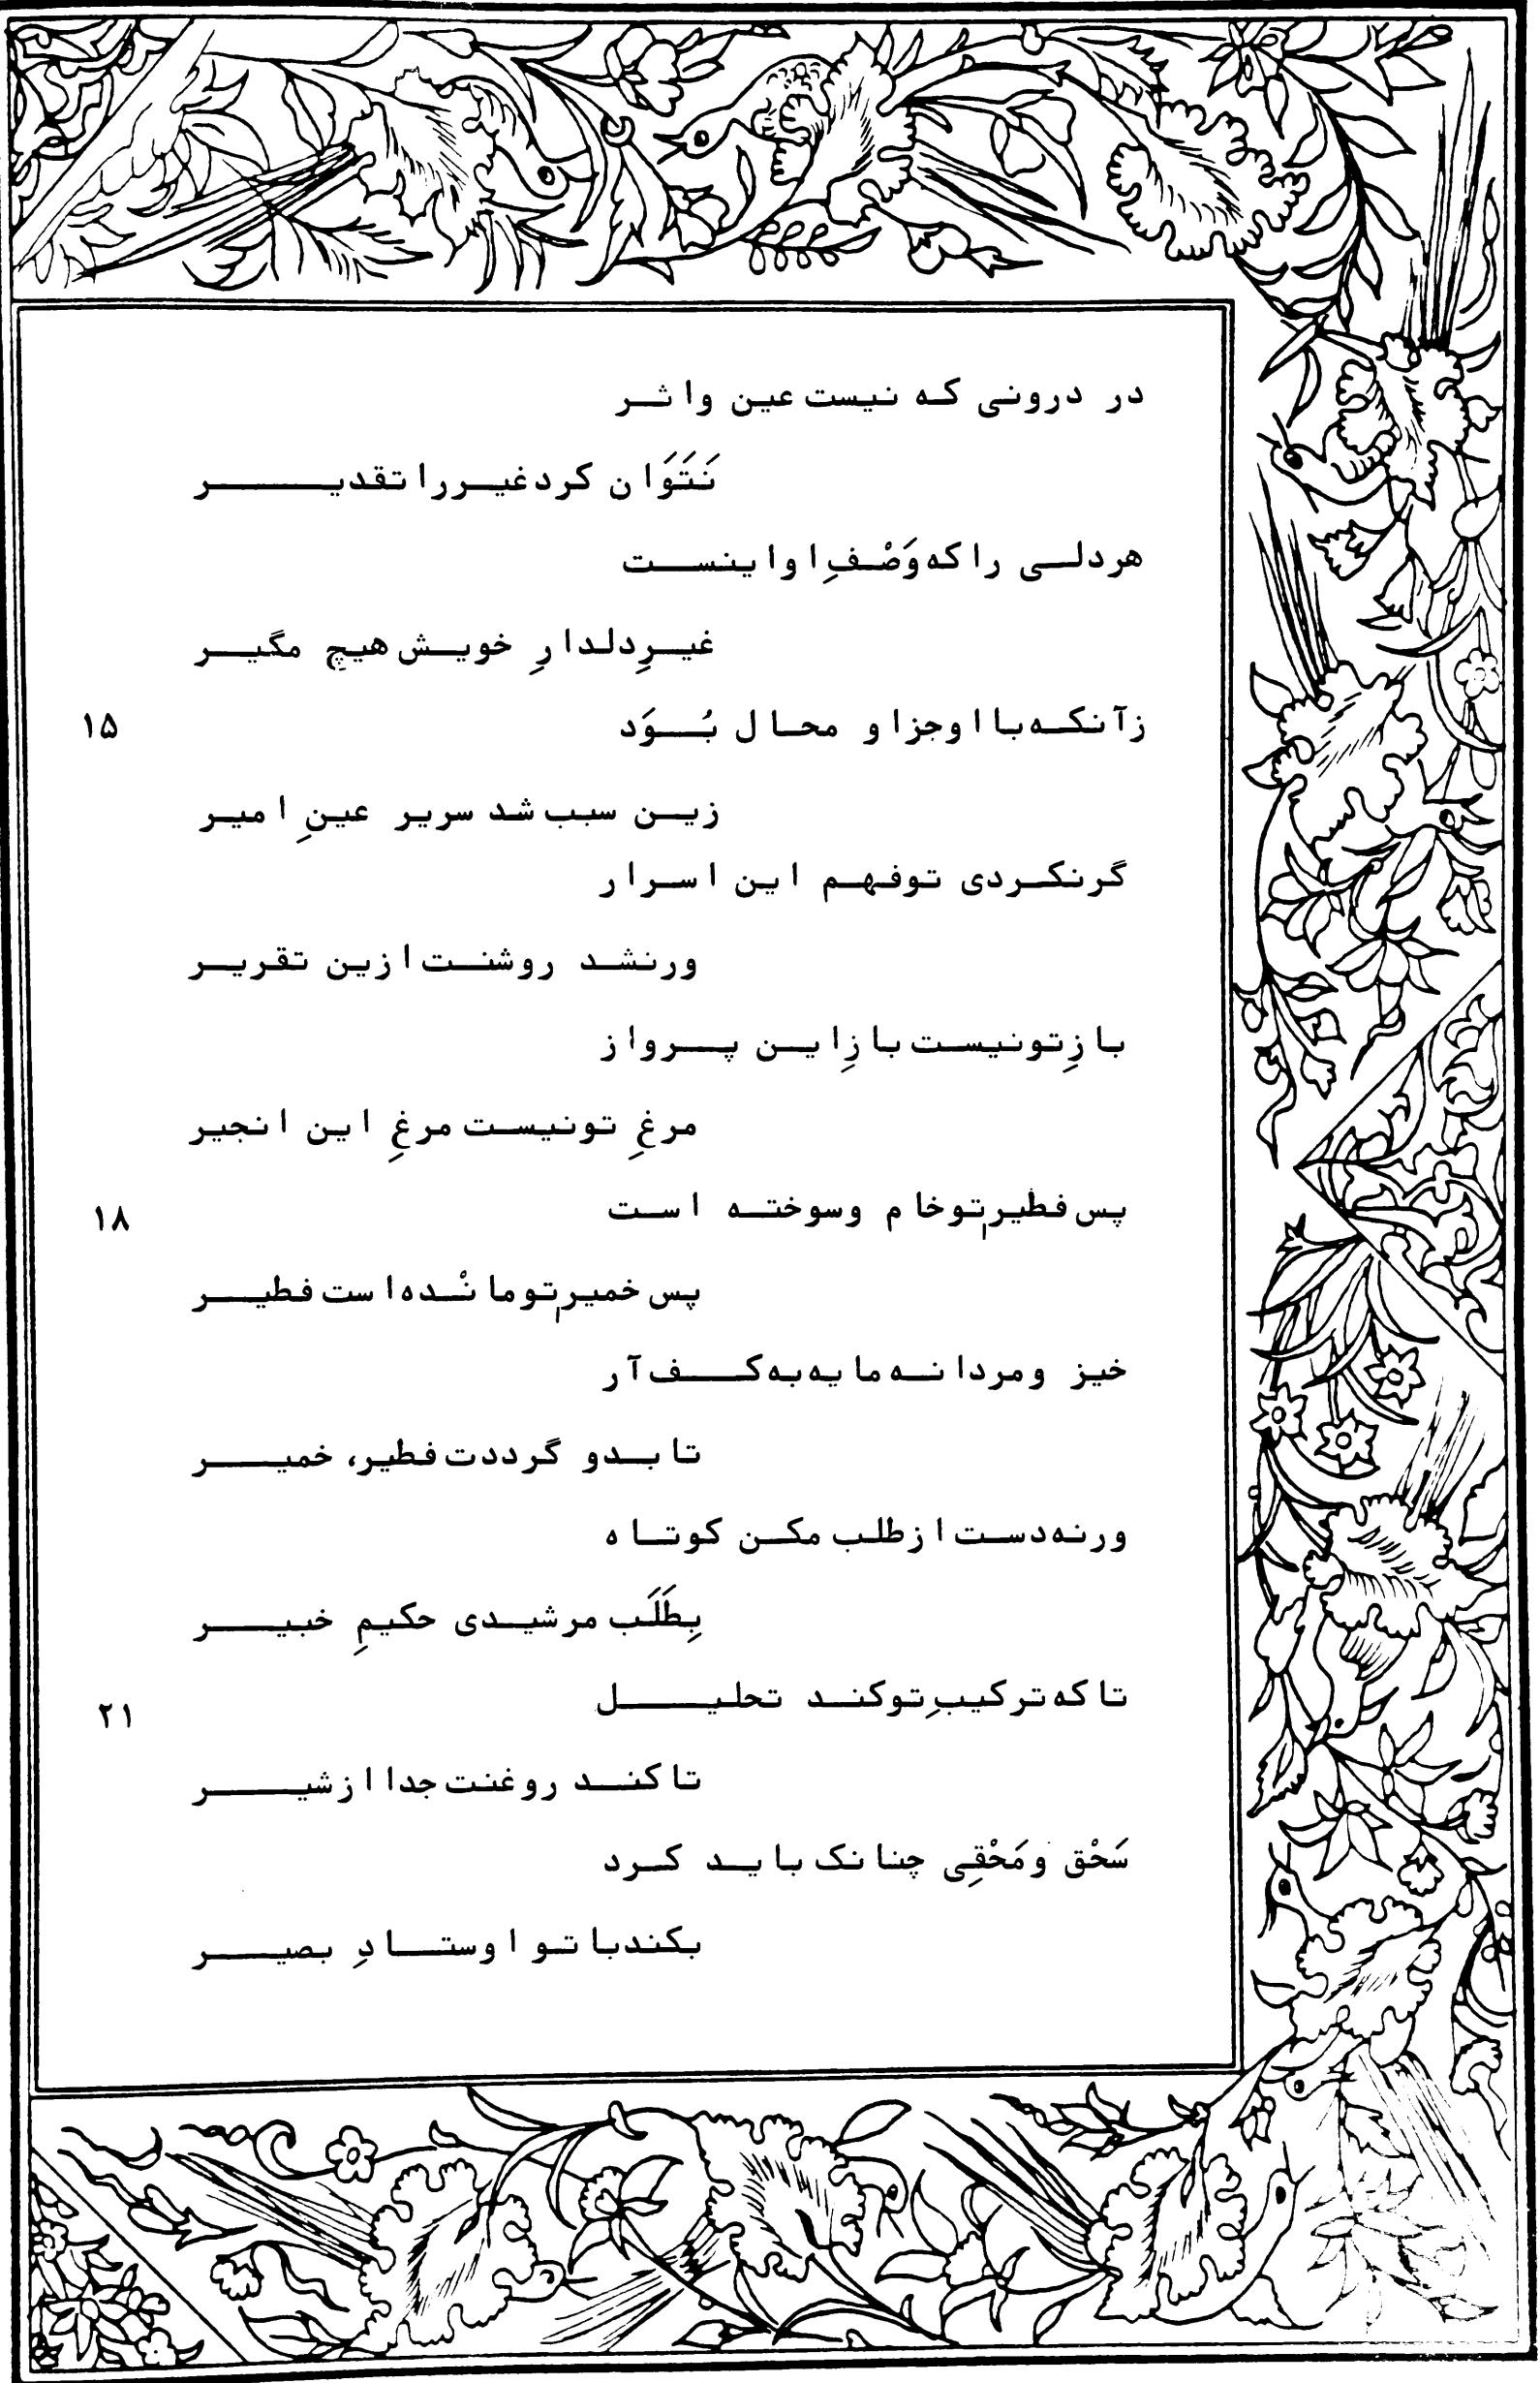 در درونی که نیست عین و اثر
نَتَوَان کرد غیر را تقدیر
هر دلی را که وَصْفِ او اینست
غیرِ دلدارِ خویش هیچ مگیر
زآنکه با او جز او محال بُوَد ۱۵
زین سبب شد سریر عینِ امیر
گر نکردی تو فهم این اسرار
ور نشد روشنت ازین تقریر
بازِ تو نیست بازِ این پرواز
مرغِ تو نیست مرغِ این انجیر
پس فطیرِ تو خام و سوخته است ۱۸
پس خمیرِ تو مانْده است فطیر
خیز و مردانه مایه به کف آر
تا بدو گرددت فطیر، خمیر
ورنه دست از طلب مکن کوتاه
بِطَلَب مرشدی حکیمِ خبیر
تا که ترکیبِ تو کند تحلیل ۲۱
تا کند روغنت جدا از شیر
سَحْق و مَحْقِی چنانک باید کرد
بکند با تو اوستادِ بصیر